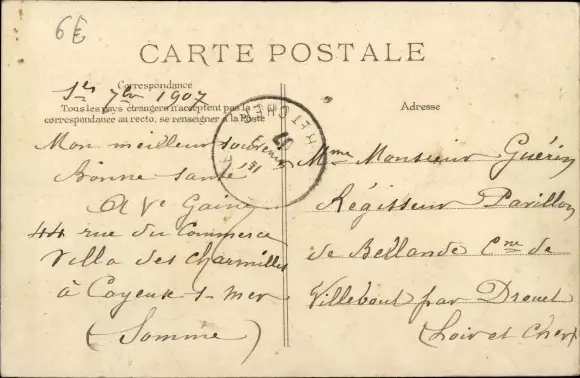 6€
CARTE POSTALE
Correspondance
1er 7bre 1907
Tous les pays étrangers n'acceptent pas la
correspondance au recto, se renseigner à la Poste
Mon meilleur souvenir
Bonne santé
A Ve Gaine
44 rue du Commerce
Villa des Charmilles
à Cayeux-s-mer
(Somme)
R ET CHER
07
Adresse
Mme Monsieur Guérin
Régisseur Pavillon
de Bellande Cne de
Villebout par Drouet
(Loir et Cher)